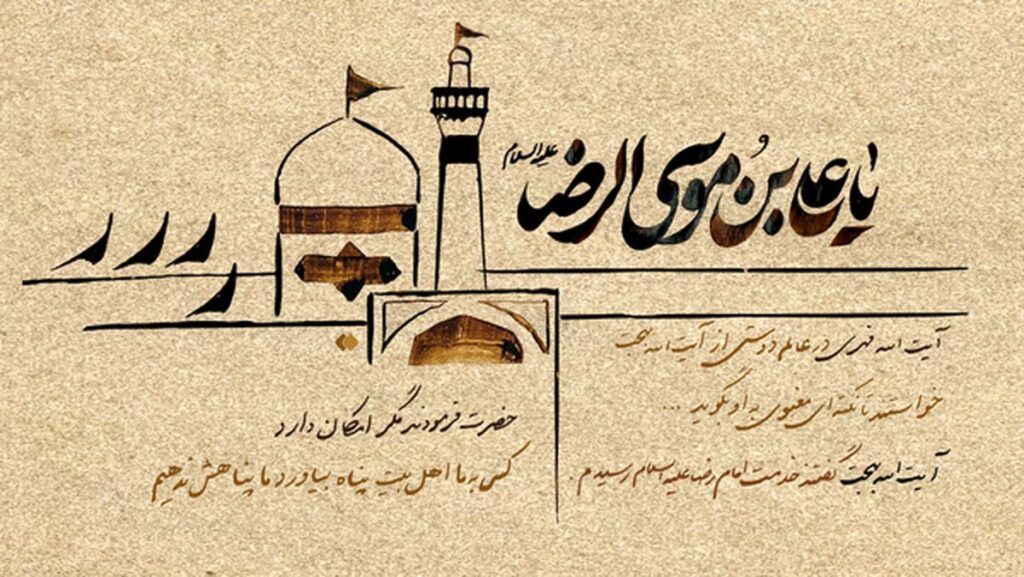 یا علی بن موسی الرضا
علیه السلام
آیت الله فهری در عالم دوستی از آیت الله بهجت
خواستند تا نکته ای معنوی به او بگوید ...
آیت الله بهجت گفتند خدمت امام رضا علیه السلام رسیدم .
حضرت فرمودند مگر امکان دارد
کسی به ما اهل بیت پناه بیاورد ما پناهش ندهیم